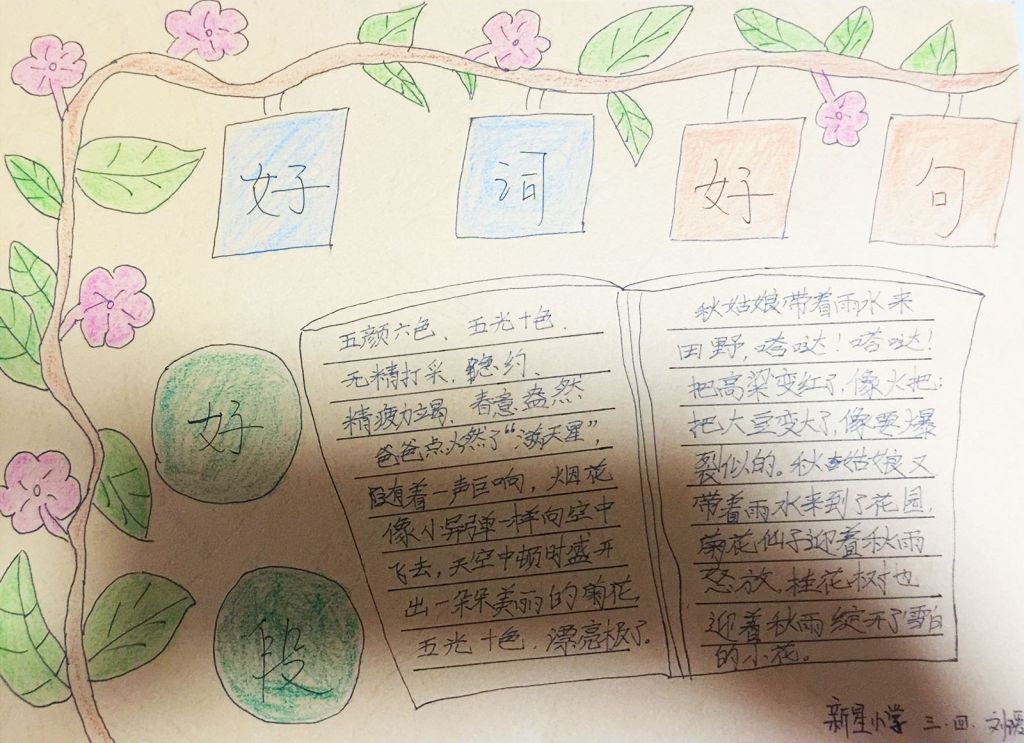 好 词 好 句
好
段
五颜六色、五光十色、
无精打采、隐约、
精疲力竭、春意盎然
爸爸点火然了“满天星”,
随着一声巨响，烟花
像小导弹一样向空中
飞去，天空中顿时盛开
出一朵朵美丽的菊花,
五光十色，漂亮极了。
秋姑娘带着雨水来
田野，嗒哒！嗒哒！
把高梁变红了，像火把；
把大豆变大了，像要爆
裂似的。秋姑娘又
带着雨水来到了花园，
菊花仙子迎着秋雨
怒放，桂花树也
迎着秋雨绽开了雪白
的小花。
新星小学 三.四. 刘